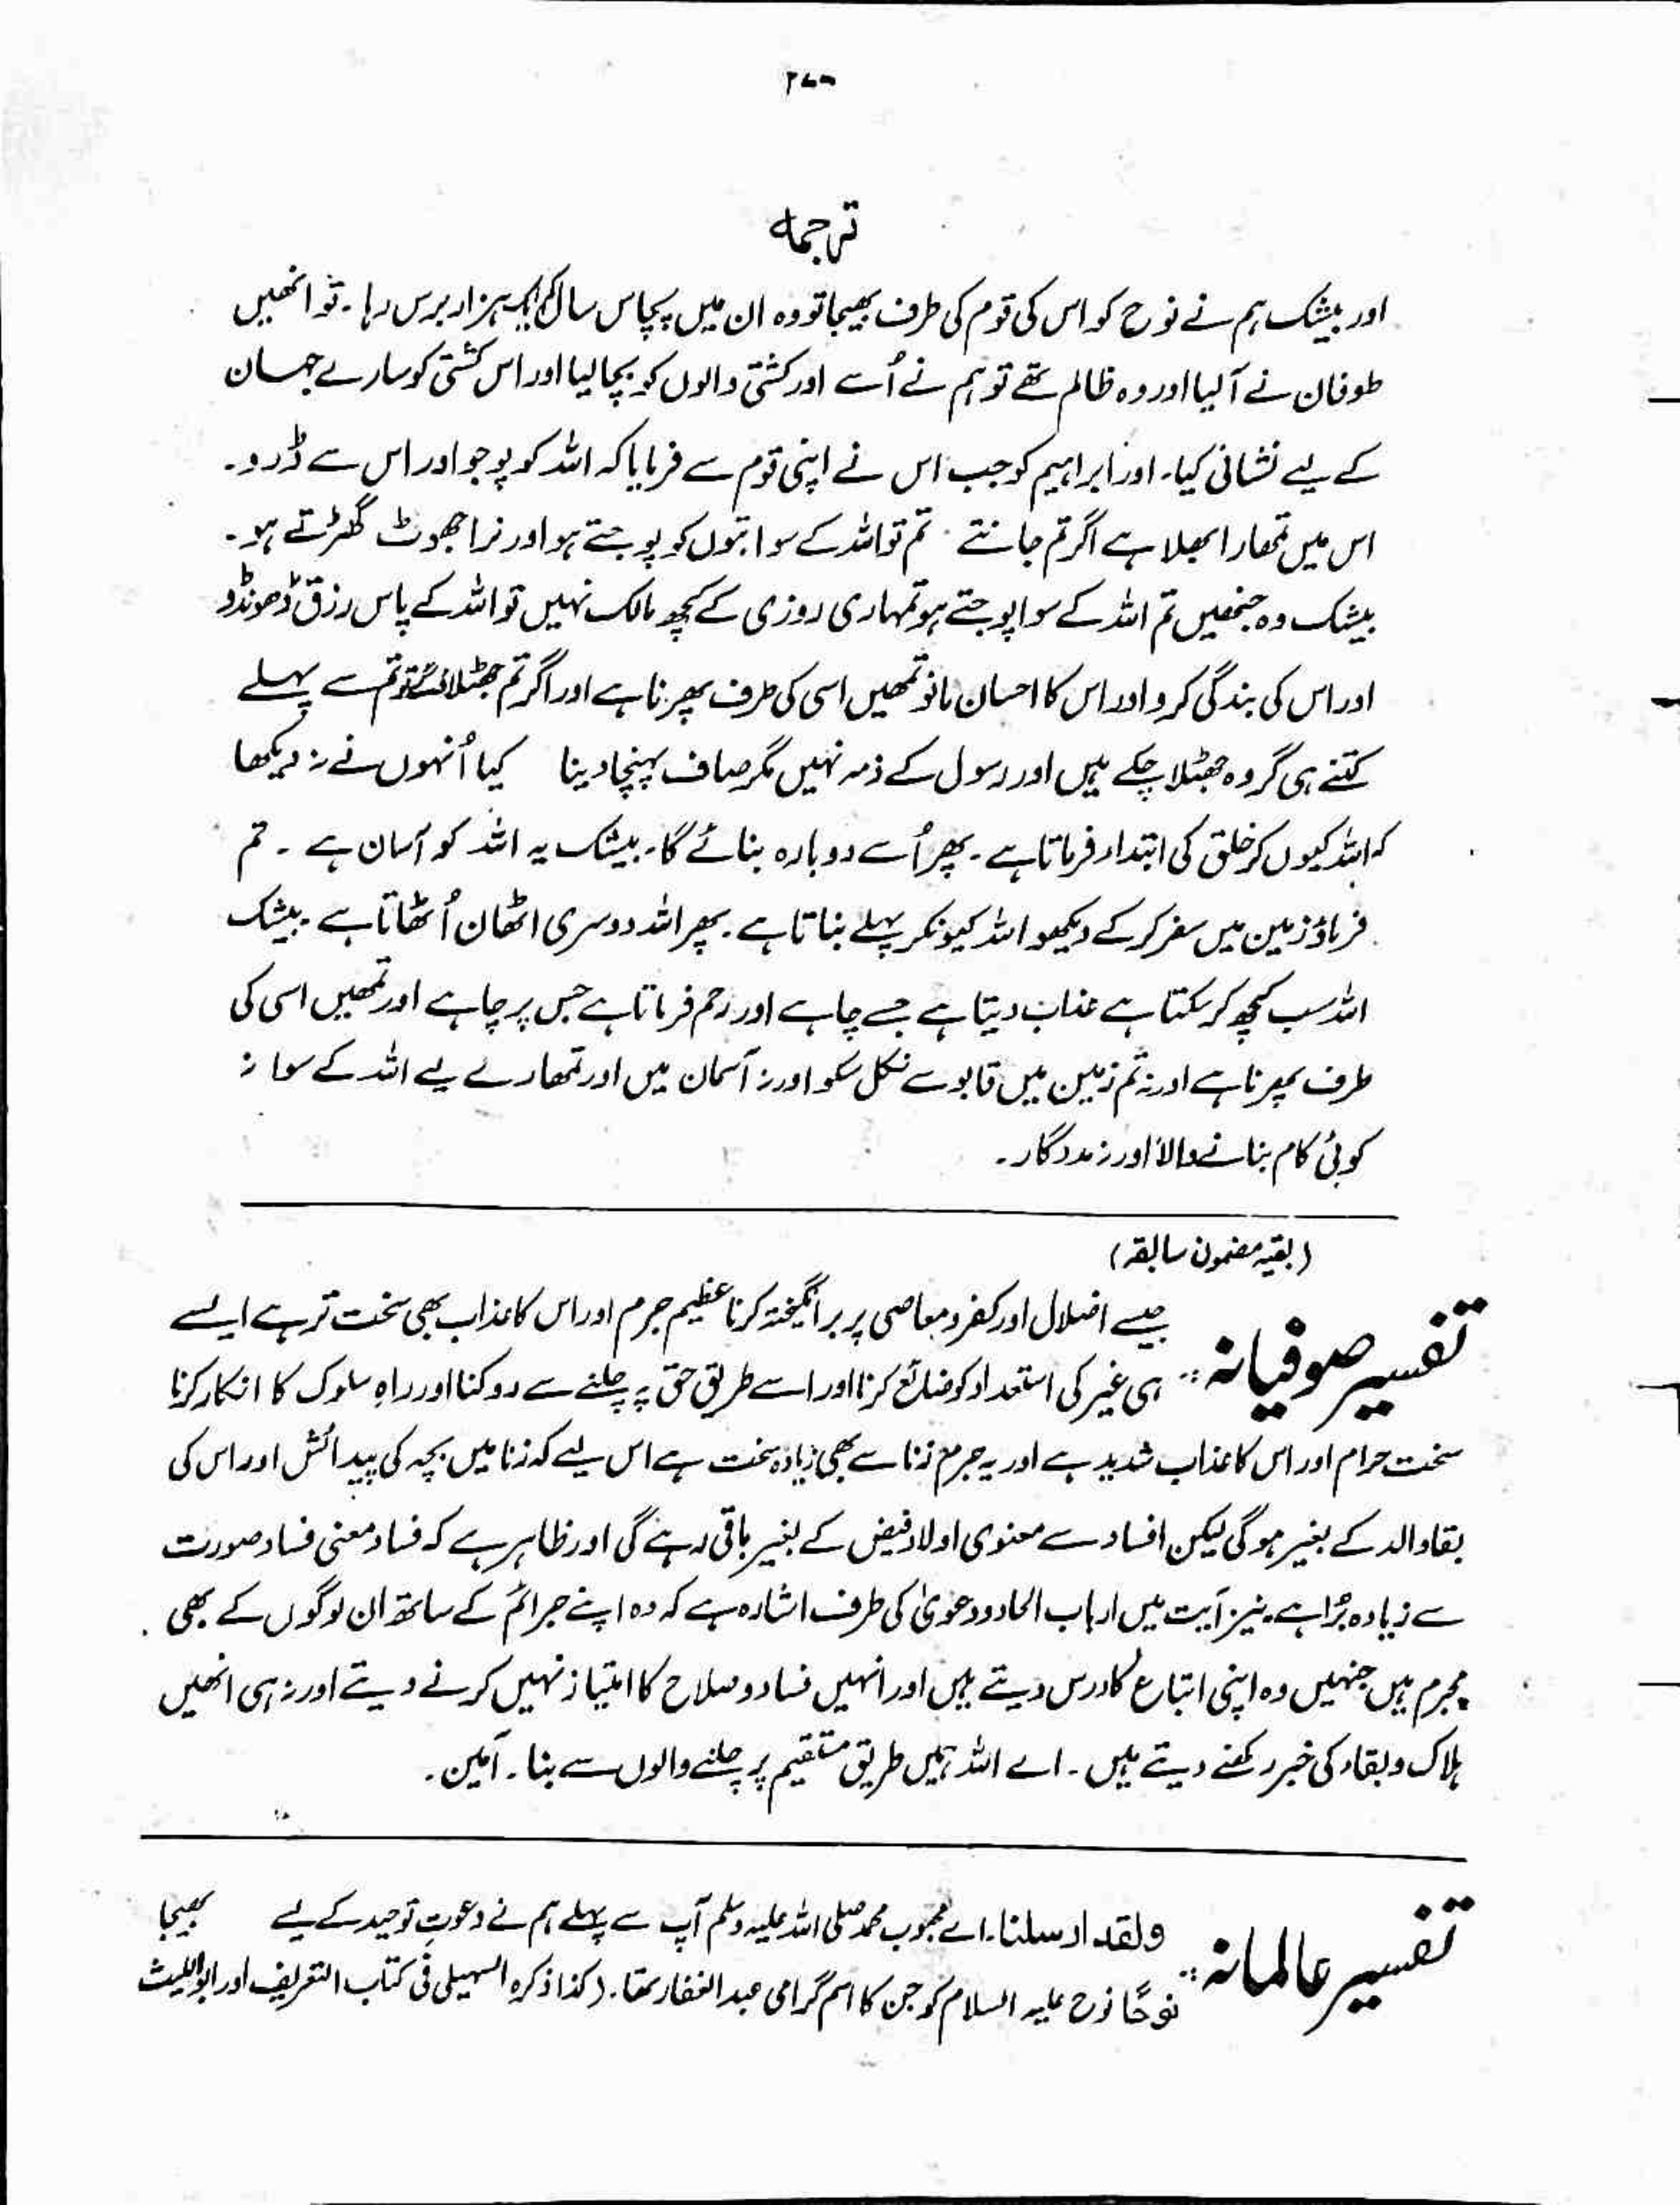 ترجمہ
اور بیشک ہم نے نوح کو اس کی قوم کی طرف بھیجا تو وہ ان میں پچاس سال کم ایک ہزار برس رہا۔ تو انھیں
طوفان نے آلیا اور وہ ظالم تھے تو ہم نے اُسے اور کشتی والوں کو بچا لیا اور اس کشتی کو سارے جہان
کے لیے نشانی کیا۔ اور ابراہیم کو جب اس نے اپنی قوم سے فرمایا کہ اللہ کو پوجو اور اس سے ڈرو۔
اس میں تمھارا بھلا ہے اگر تم جانتے تم تو اللہ کے سوا بتوں کو پوجتے ہو اور نرا جھوٹ گھڑتے ہو۔
بیشک وہ جنھیں تم اللہ کے سوا پوجتے ہو تمہاری روزی کے کچھ مالک نہیں تو اللہ کے پاس رزق ڈھونڈو
اور اس کی بندگی کرو اور اس کا احسان مانو تمھیں اسی کی طرف پھرنا ہے اور اگر تم جھٹلاؤ گے تو تم سے پہلے
کتنے ہی گروہ جھٹلا چکے ہیں اور رسول کے ذمہ نہیں مگر صاف پہنچا دینا کیا اُنہوں نے نہ دیکھا
کہ اللہ کیوں کر خلق کی ابتداء فرماتا ہے۔ پھر اُسے دوبارہ بنائے گا۔ بیشک یہ اللہ کو آسان ہے ۔ تم
فرماؤ زمین میں سفر کر کے دیکھو اللہ کیونکر پہلے بناتا ہے۔ پھر اللہ دوسری اٹھان اُٹھاتا ہے۔ بیشک
اللہ سب کچھ کر سکتا ہے عذاب دیتا ہے جسے چاہے اور رحم فرماتا ہے جس پر چاہے اور تمھیں اسی کی
طرف پھرنا ہے اور نہ تم زمین میں قابو سے نکل سکو اور نہ آسمان میں اور تمھارے لیے اللہ کے سوا نہ
کوئی کام بنانے والا اور نہ مددگار۔
(بقیہ مضمون سابقہ)
تفسیر صوفیانہ :: جیسے اضلال اور کفر و معاصی پر برانگیختہ کرنا عظیم جرم اور اس کا عذاب بھی سخت تر ہے ایسے
ہی غیر کی استعداد کو ضائع کرنا اور اسے طریق حق پہ چلنے سے روکنا اور راہِ سلوک کا انکار کرنا
سخت حرام اور اس کا عذاب شدید ہے اور یہ جرم زنا سے بھی زیادہ سخت ہے اس لیے کہ زنا میں بچہ کی پیدائش اور اس کی
بقاء والد کے بغیر ہوگی لیکن افساد سے معنوی اولاد فیض کے بغیر باقی رہے گی اور ظاہر ہے کہ فساد معنی فساد صورت
سے زیادہ بُرا ہے۔ نیز آیت میں ارباب الحاد و دعویٰ کی طرف اشارہ ہے کہ وہ اپنے جرائم کے ساتھ ان لوگوں کے بھی
مجرم ہیں جنہیں وہ اپنی اتباع کا درس دیتے ہیں اور انہیں فساد و صلاح کا امتیاز نہیں کرنے دیتے اور نہ ہی انھیں
ہلاک و بقاء کی خبر رکھنے دیتے ہیں۔ اے اللہ ہمیں طریق مستقیم پر چلنے والوں سے بنا۔ آمین۔
تفسیر عالمانہ :: ولقد ارسلنا۔ اے محبوب محمد صلی اللہ علیہ وسلم آپ سے پہلے ہم نے دعوتِ توحید کے لیے بھیجا
نوحًا نوح علیہ السلام کو جن کا اسم گرامی عبد الغفار تھا۔ (کذا ذکرہ السہیلی فی کتاب التعریف اور ابو اللیث